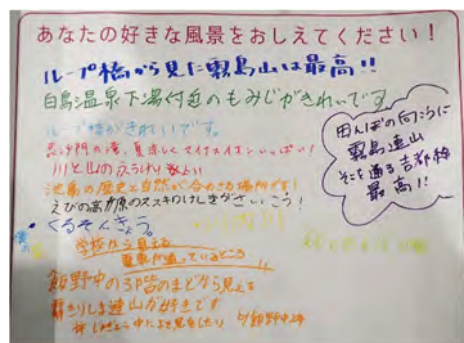 あなたの好きな風景をおしえてください！
ループ橋から見た霧島山は最高!!
白鳥温泉下湯付近のもみじがきれいです
ループ橋がきれいです。
毘沙門の滝、夏涼しくマイナスイオンいっぱい！
川と山の
池島の歴史と自然が合わさる場所です！
えびの高原のススキのけしきがさいこう！
くるそんきょう。
学校から見える
電車が通っているところ
飯野中の3階のまどから見える
霧きりしま連山が好きです
田んぼの向こうに
霧島連山
そこを通る吉都線
最高!!